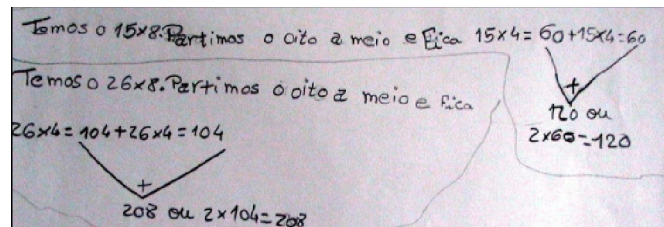 Temos o 15x8. Partimos o oito a meio e fica 15x4=60+15x4=60
+
120 ou
2x60=120
Temos o 26x8. Partimos o oito a meio e fica
26x4=104+26x4=104
+
208 ou 2x104=208